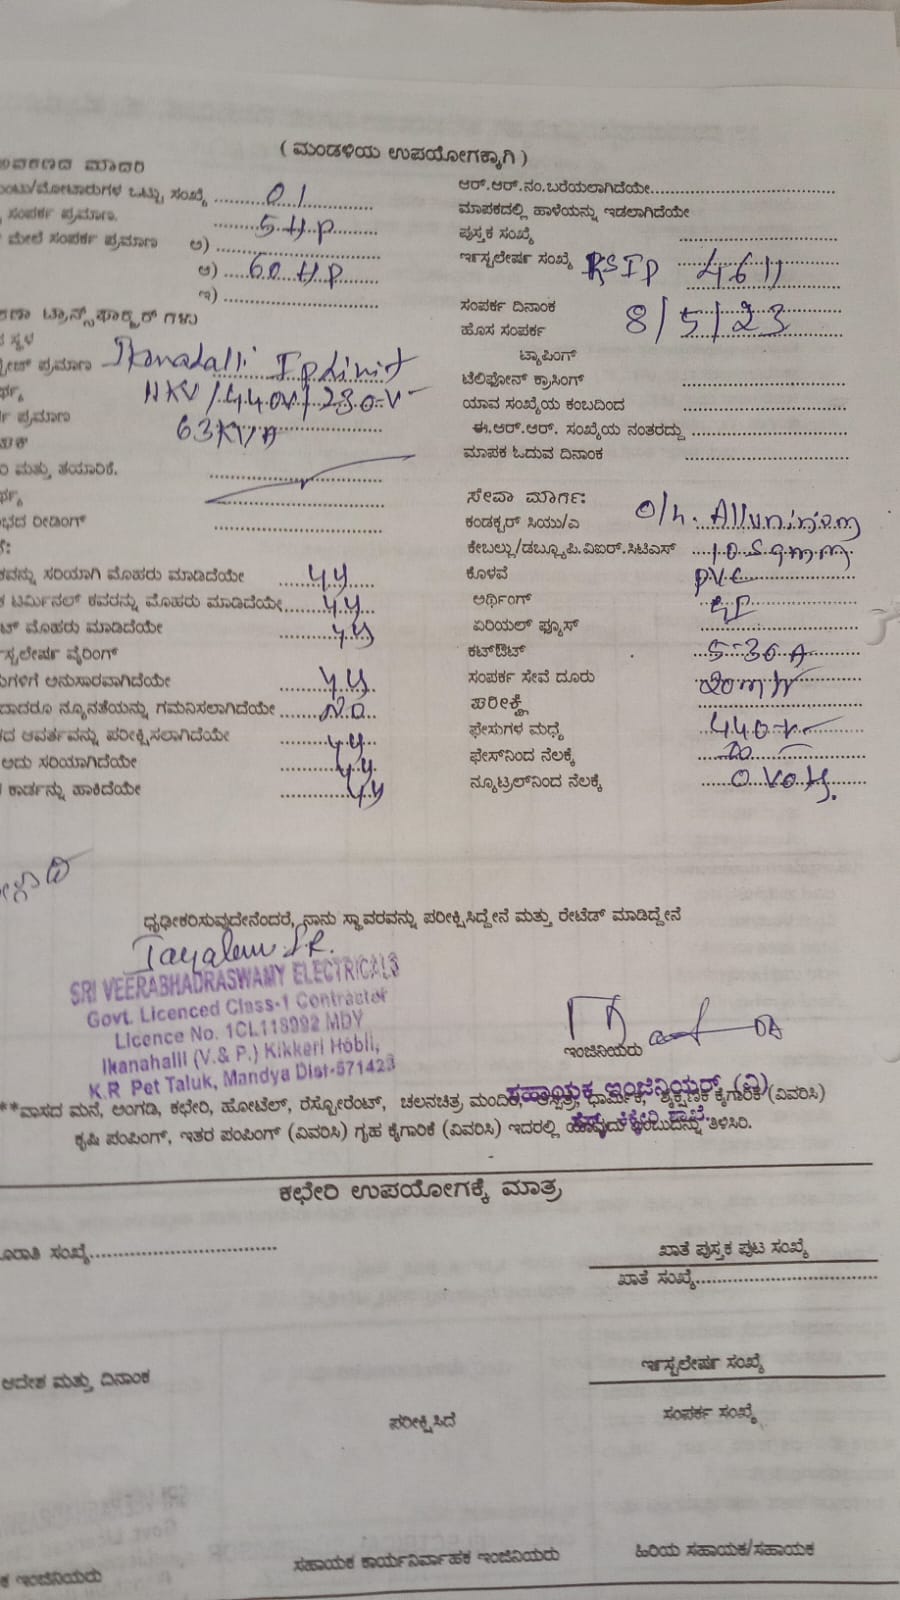 ( ಮಂಡಳಿಯ ಉಪಯೋಗಕ್ಕಾಗಿ )
ವಿವರಣದ ಮಾದರಿ
ಒಟ್ಟು ಸಂಖ್ಯೆ 01
ಸಂಪರ್ಕ ಪ್ರಮಾಣ. 5 H.P
ಮೇಲೆ ಸಂಪರ್ಕ ಪ್ರಮಾಣ ಅ)
ಆ) 60 HP
ಇ)
ಟ್ರಾನ್ಸ್‌ಫಾರ್ಮರ್ ಗಳು
ಸ್ಥಳ
ಪ್ರಮಾಣ
11KV/440V/230-V
ಪ್ರಮಾಣ 63KVA
ಮತ್ತು ತಯಾರಿಕೆ.
ರೀಡಿಂಗ್
ಸರಿಯಾಗಿ ಮೊಹರು ಮಾಡಿದೆಯೇ yy
ಟರ್ಮಿನಲ್ ಕವರನ್ನು ಮೊಹರು ಮಾಡಿದೆಯೇ yy
ಮೊಹರು ಮಾಡಿದೆಯೇ yy
ವೈರಿಂಗ್
ಅನುಸಾರವಾಗಿದೆಯೇ yy
ನ್ಯೂನತೆಯನ್ನು ಗಮನಿಸಲಾಗಿದೆಯೇ No
ಆವರ್ತವನ್ನು ಪರೀಕ್ಷಿಸಲಾಗಿದೆಯೇ yy
ಅದು ಸರಿಯಾಗಿದೆಯೇ yy
ಕಾರ್ಡನ್ನು ಹಾಕಿದೆಯೇ yy
ಆರ್.ಆರ್.ನಂ.ಬರೆಯಲಾಗಿದೆಯೇ
ಮಾಪಕದಲ್ಲಿ ಹಾಳೆಯನ್ನು ಇಡಲಾಗಿದೆಯೇ
ಪುಸ್ತಕ ಸಂಖ್ಯೆ
ಇನ್ಸ್ಟಲೇಷನ್ ಸಂಖ್ಯೆ RSIP 4611
ಸಂಪರ್ಕ ದಿನಾಂಕ 8/5/23
ಹೊಸ ಸಂಪರ್ಕ
ಟ್ಯಾಪಿಂಗ್
ಟೆಲಿಫೋನ್ ಕ್ರಾಸಿಂಗ್
ಯಾವ ಸಂಖ್ಯೆಯ ಕಂಬದಿಂದ
ಈ.ಆರ್.ಆರ್. ಸಂಖ್ಯೆಯ ನಂತರದ್ದು
ಮಾಪಕ ಓದುವ ದಿನಾಂಕ
ಸೇವಾ ಮಾರ್ಗ:
ಕಂಡಕ್ಟರ್ ಸಿಯು/ಎ O/h. Alluminiom
ಕೇಬಲ್ಲು/ಡಬ್ಲೂಪಿ.ವಿಐರ್.ಸಿಟಿಎಸ್ 10 Sqmm.
ಕೊಳವೆ PVC
ಅರ್ಥಿಂಗ್ GI
ಏರಿಯಲ್ ಫ್ಯೂಸ್
ಕಟ್‌ಔಟ್ 5-30 A
ಸಂಪರ್ಕ ಸೇವೆ ದೂರು
ಪರೀಕ್ಷೆ
ಫೇಸುಗಳ ಮಧ್ಯೆ 440-V
ಫೇಸ್‌ನಿಂದ ನೆಲಕ್ಕೆ
ನ್ಯೂಟ್ರಲ್‌ನಿಂದ ನೆಲಕ್ಕೆ 0 Volt.
ಧೃಢೀಕರಿಸುವುದೇನೆಂದರೆ, ನಾನು ಸ್ಥಾವರವನ್ನು ಪರೀಕ್ಷಿಸಿದ್ದೇನೆ ಮತ್ತು ರೇಟೆಡ್ ಮಾಡಿದ್ದೇನೆ
SRI VEERABHADRASWAMY ELECTRICALS
Govt. Licenced Class-1 Contractor
Licence No. 1CL118992 MDY
Ikanahalli (V.& P.) Kikkeri Hobli,
K.R Pet Taluk, Mandya Dist-571423
ಇಂಜಿನಿಯರು
ಸಹಾಯಕ ಇಂಜಿನಿಯರ್ (ವಿ)
**ವಾಸದ ಮನೆ, ಅಂಗಡಿ, ಕಛೇರಿ, ಹೋಟೆಲ್, ರೆಸ್ಟೋರೆಂಟ್, ಚಲನಚಿತ್ರ ಮಂದಿರ, ಆಸ್ಪತ್ರೆ, ಧಾರ್ಮಿಕ, ಶೈಕ್ಷಣಿಕ ಕೈಗಾರಿಕೆ (ವಿವರಿಸಿ)
ಕೃಷಿ ಪಂಪಿಂಗ್, ಇತರ ಪಂಪಿಂಗ್ (ವಿವರಿಸಿ) ಗೃಹ ಕೈಗಾರಿಕೆ (ವಿವರಿಸಿ) ಇದರಲ್ಲಿ ಯಾವುದು ಇರಬುದನ್ನು ತಿಳಿಸಿರಿ.
ಕಛೇರಿ ಉಪಯೋಗಕ್ಕೆ ಮಾತ್ರ
ಸಂಖ್ಯೆ
ಖಾತೆ ಪುಸ್ತಕ ಪುಟ ಸಂಖ್ಯೆ
ಖಾತೆ ಸಂಖ್ಯೆ
ಇನ್ಸ್ಟಲೇಷನ್ ಸಂಖ್ಯೆ
ಆದೇಶ ಮತ್ತು ದಿನಾಂಕ
ಸಂಪರ್ಕ ಸಂಖ್ಯೆ
ಪರೀಕ್ಷಿಸಿದೆ
ಇಂಜಿನಿಯರು
ಸಹಾಯಕ ಕಾರ್ಯನಿರ್ವಾಹಕ ಇಂಜಿನಿಯರು
ಹಿರಿಯ ಸಹಾಯಕ/ಸಹಾಯಕ